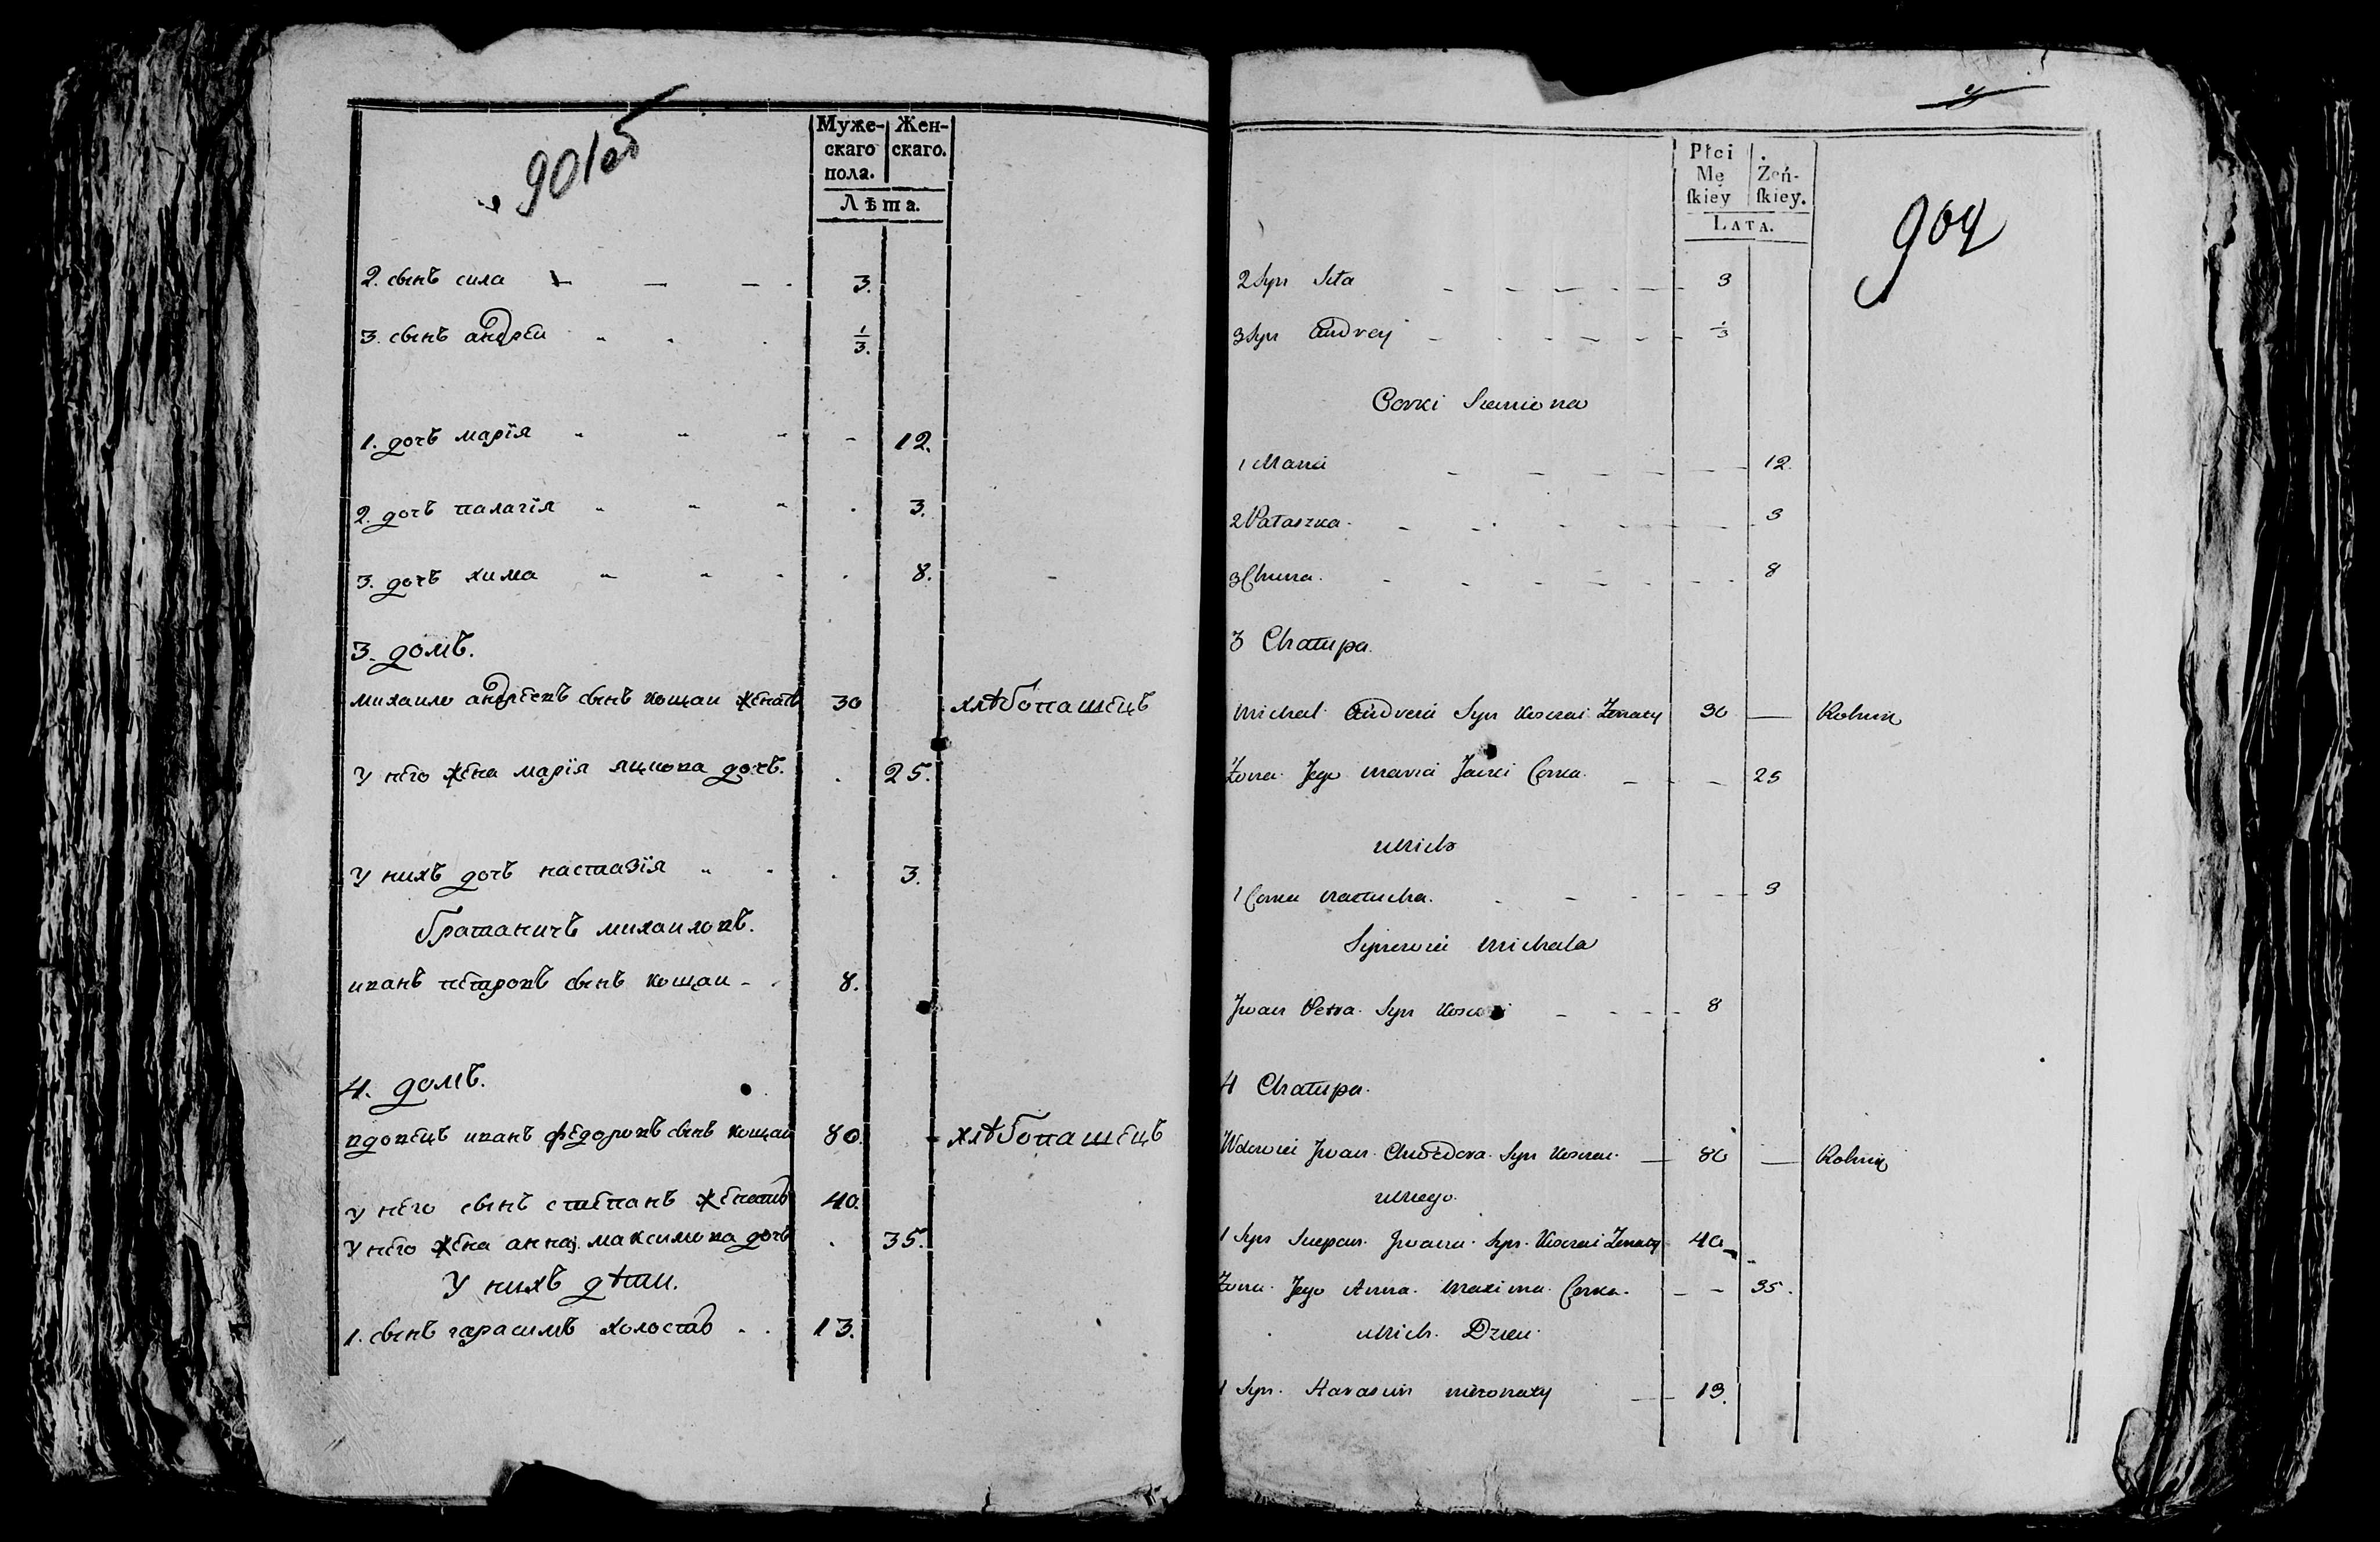 901об
Муже- Жен-
скаго скаго.
пола.
Лѣта.
2. сынъ сила 3.
3. сынъ андрей 1/3.
1. дочъ марїя 12.
2. дочъ палагїя 3.
3. дочъ хима 8.
3. домъ.
михаило андрѣевъ сынъ кощаи женатъ 30 хлѣбопашецъ
у него жена марїя яцкова дочъ. 25.
у нихъ дочъ настазїя 3.
братаничъ михаиловъ.
иванъ петровъ сынъ кощаи 8.
4. домъ.
вдовецъ иванъ федоровъ сынъ кощаи 80. хлѣбопашецъ
у него сынъ степанъ женатъ 40.
у него жена анна максимова дочъ 35.
У нихъ дѣти.
1. сынъ гарасимъ холостъ 13.
Płci
Mę Żeń-
ſkiey ſkiey.
LATA.
2 Syn Siła 3
3 Syn Andrey 1/3
Corki Siemiona
1 Maria 12.
2 Pałaszka 3
3 Chima 8
3 Chałupa.
Michał Andreia Syn Koszczai Zonaty 30 — Rolnik
Zona Jego Maria Jacki Corka 25
u Nich
1 Corka Nastucha. 3
Synowiei Michała
Jwan Petra Syn 8
4 Chałupa.
Wdowiei Jwan Chwedora Syn Koszczai 80 — Rolnik
u Niego
1 Syn Stepan Jwana Syn Koszczai Zonaty 40
Zona Jego Anna Maxima Corka 35.
u Nich Dzieci
1 Syn Harasim niezonaty 13.